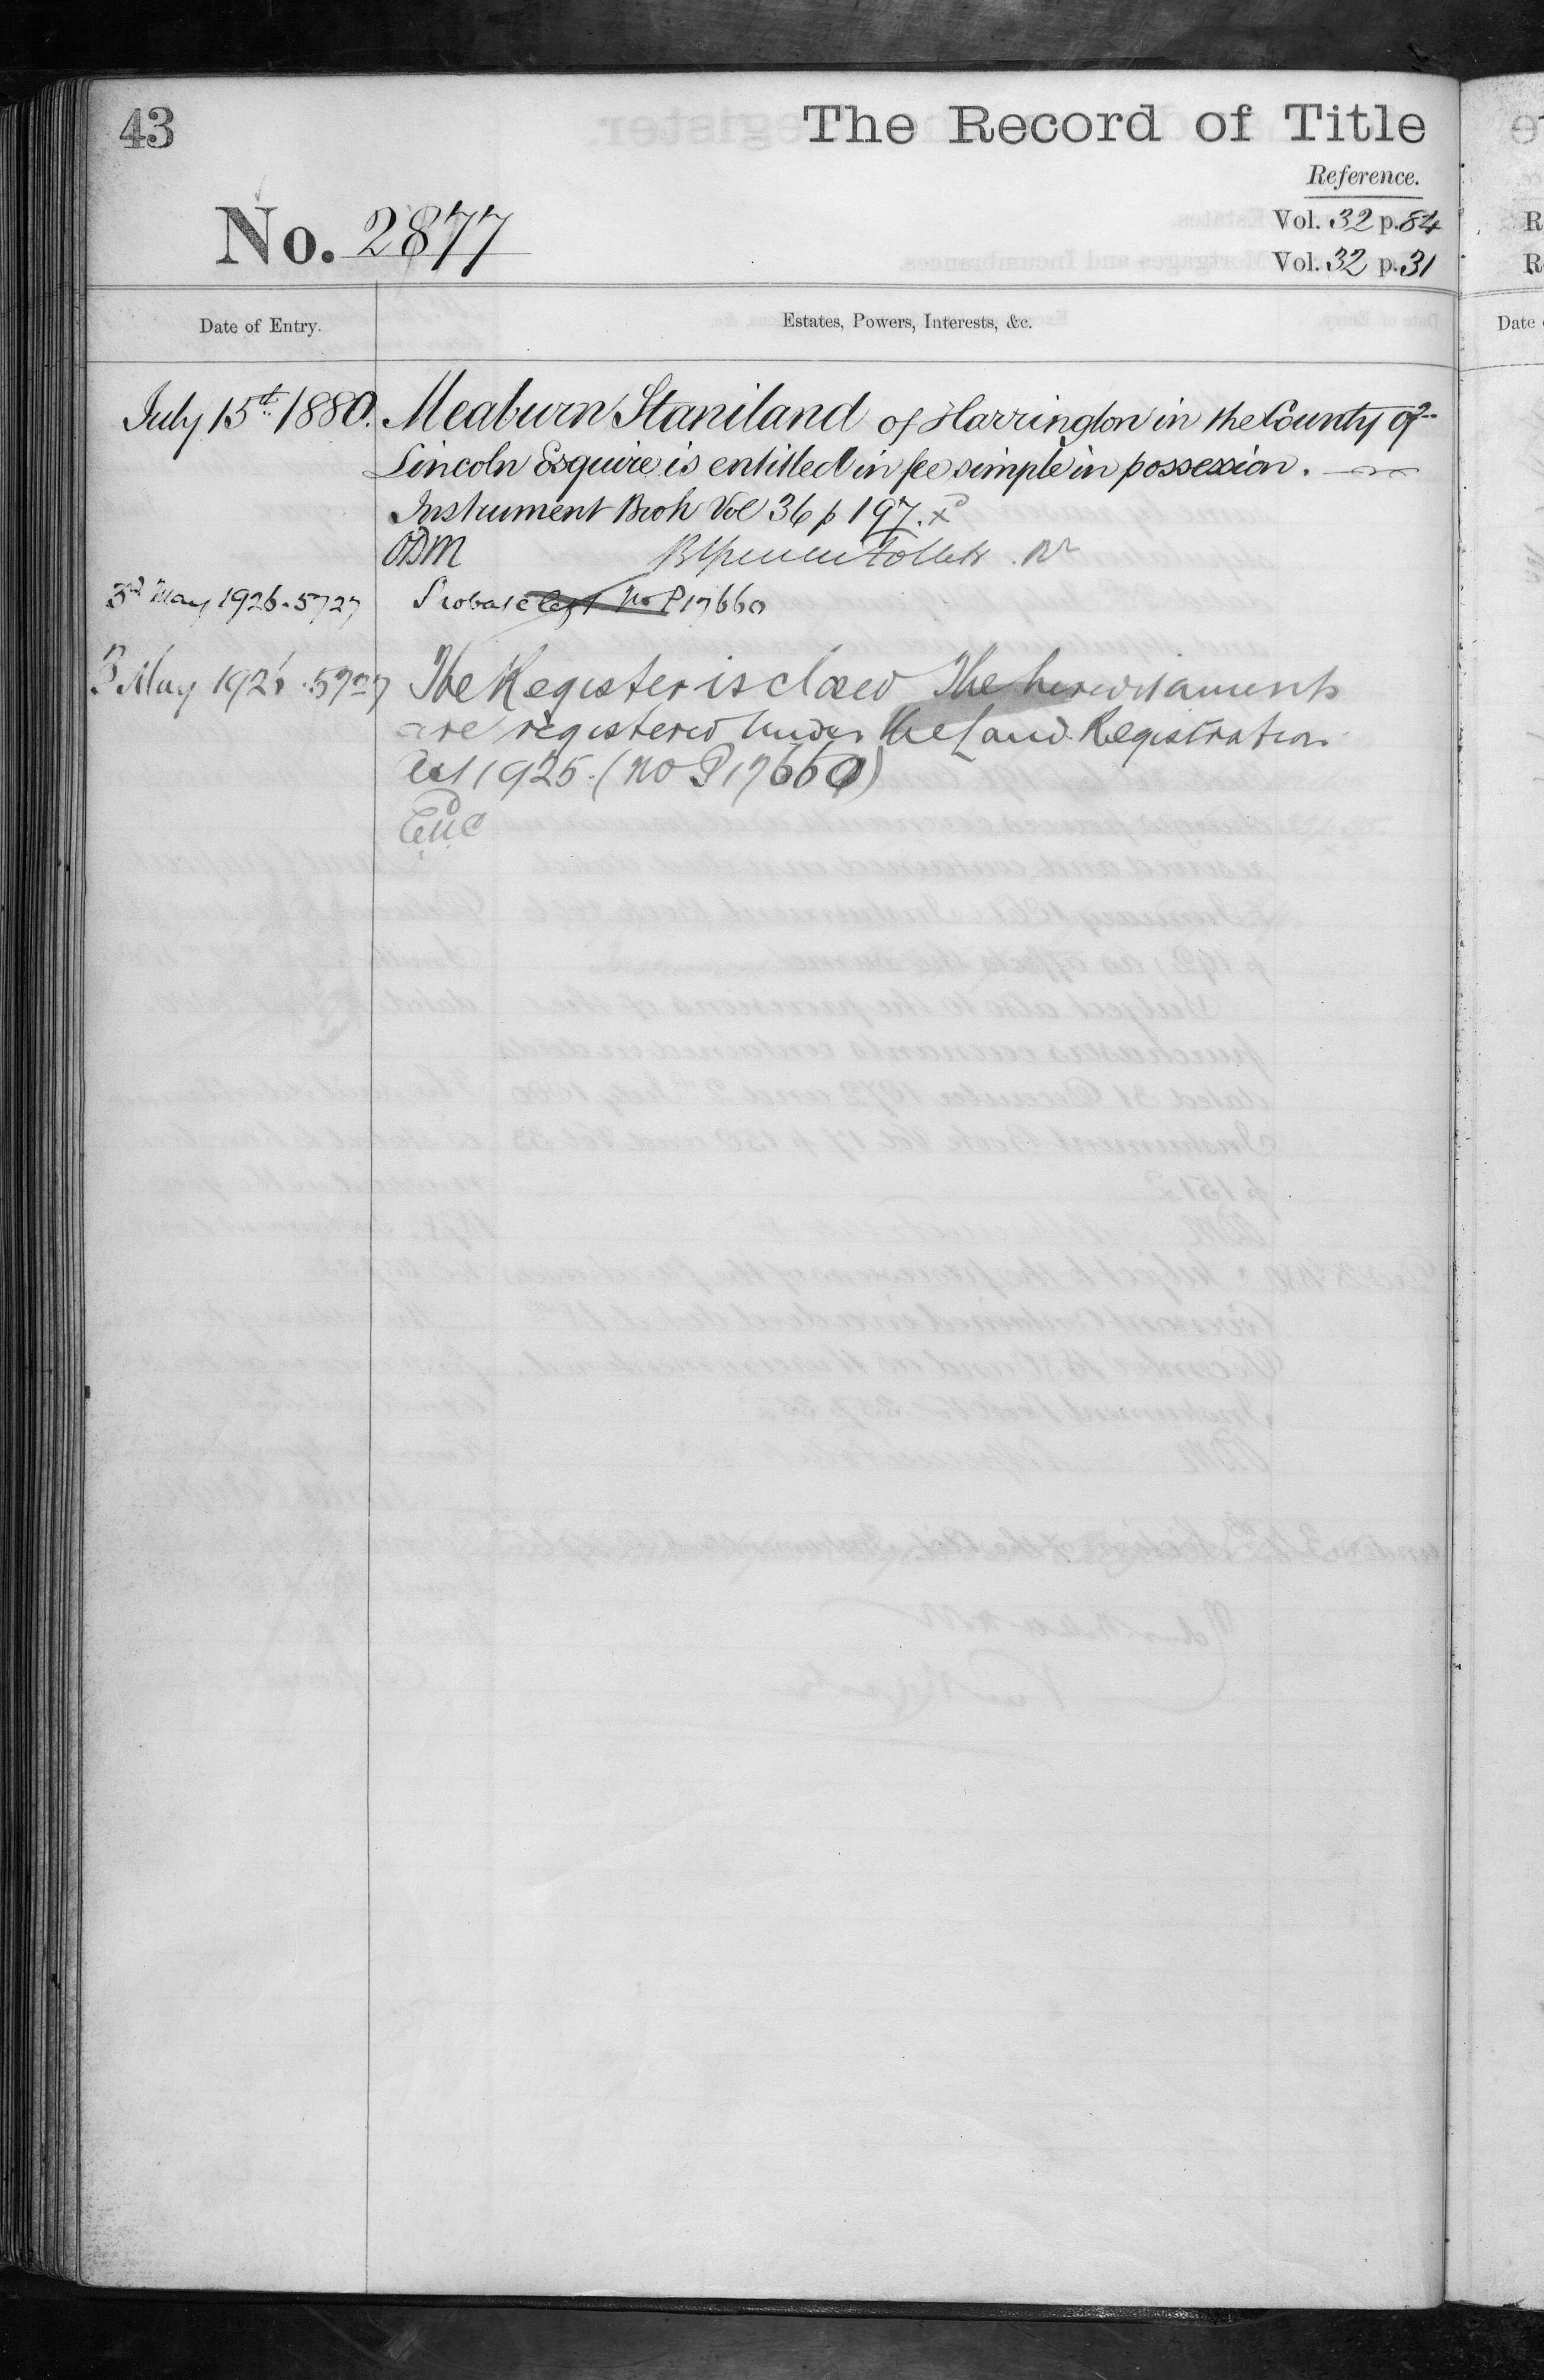 43
The Record of Title
Reference.
No. 2877
Vol. 32 p. 84
Vol. 32 p. 31
Date of Entry.
Estates, Powers, Interests, &c.
July 15th 1880. Meaburn Staniland of Harrington in the County of
Lincoln Esquire is entitled in fee simple in possession.
Instrument Book Vol 36 p 197.
ODM
3rd May 1926. 5727 Probate left No P17660
3 May 1926. 5727 The Register is closed The hereditaments
are registered under the Land Registration
Act 1925. (No P17660)
R
R
Date